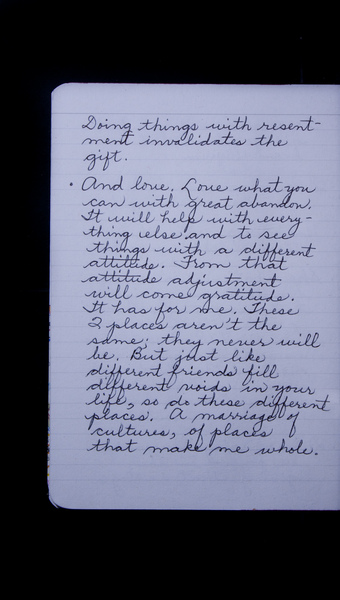 Doing things with resent-
ment invalidates the
gift.
• And love. Love what you
can with great abandon.
It will help with every-
thing else and to see
things with a different
attitude. From that
attitude adjustment
will come gratitude.
It has for me. These
2 places aren't the
same; they never will
be. But just like
different friends fill
different voids in your
life, so do these different
places. A marriage of
cultures, of places
that make me whole.